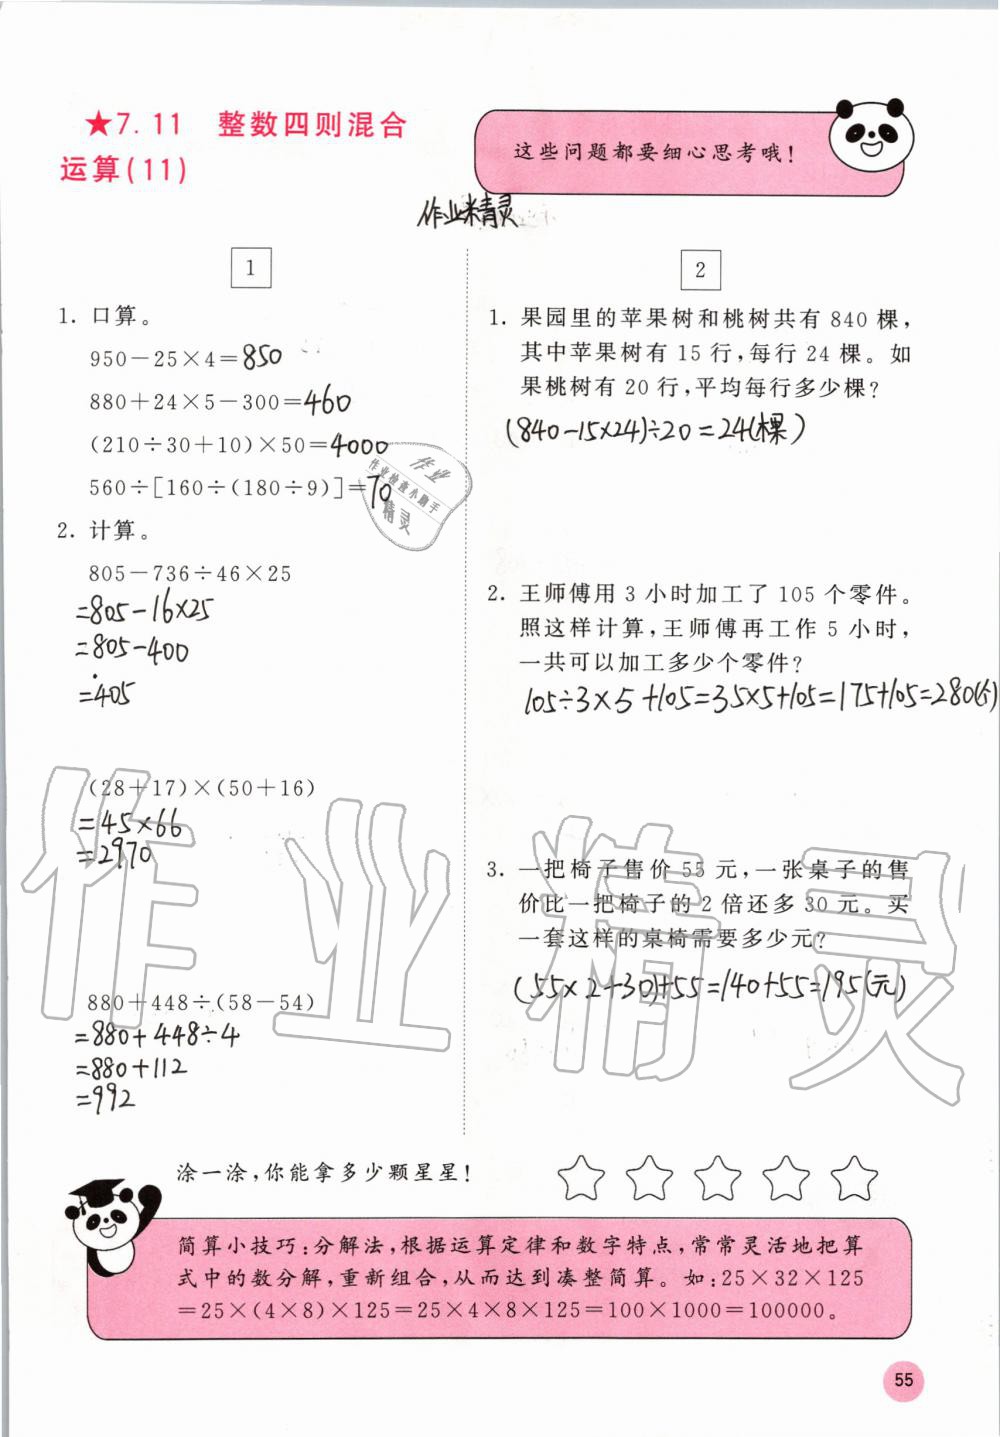 ★7.11 整数四则混合
运算(11)
这些问题都要细心思考哦!
作业精灵
1
1. 口算。
950-25×4=850
880+24×5-300=460
(210÷30+10)×50=4000
560÷[160÷(180÷9)]=70
2. 计算。
805-736÷46×25
=805-16×25
=805-400
=405
(28+17)×(50+16)
=45×66
=2970
880+448÷(58-54)
=880+448÷4
=880+112
=992
2
1. 果园里的苹果树和桃树共有 840 棵,
其中苹果树有 15 行,每行 24 棵。如
果桃树有 20 行,平均每行多少棵?
(840-15×24)÷20=24(棵)
2. 王师傅用 3 小时加工了 105 个零件。
照这样计算,王师傅再工作 5 小时,
一共可以加工多少个零件?
105÷3×5+105=35×5+105=175+105=280(个)
3. 一把椅子售价 55 元,一张桌子的售
价比一把椅子的 2 倍还多 30 元。买
一套这样的桌椅需要多少元?
(55×2+30)+55=140+55=195(元)
作业
作业检查小助手
精灵
作业精灵
涂一涂,你能拿多少颗星星!
简算小技巧:分解法,根据运算定律和数字特点,常常灵活地把算
式中的数分解,重新组合,从而达到凑整简算。如:25×32×125
=25×(4×8)×125=25×4×8×125=100×1000=100000。
55